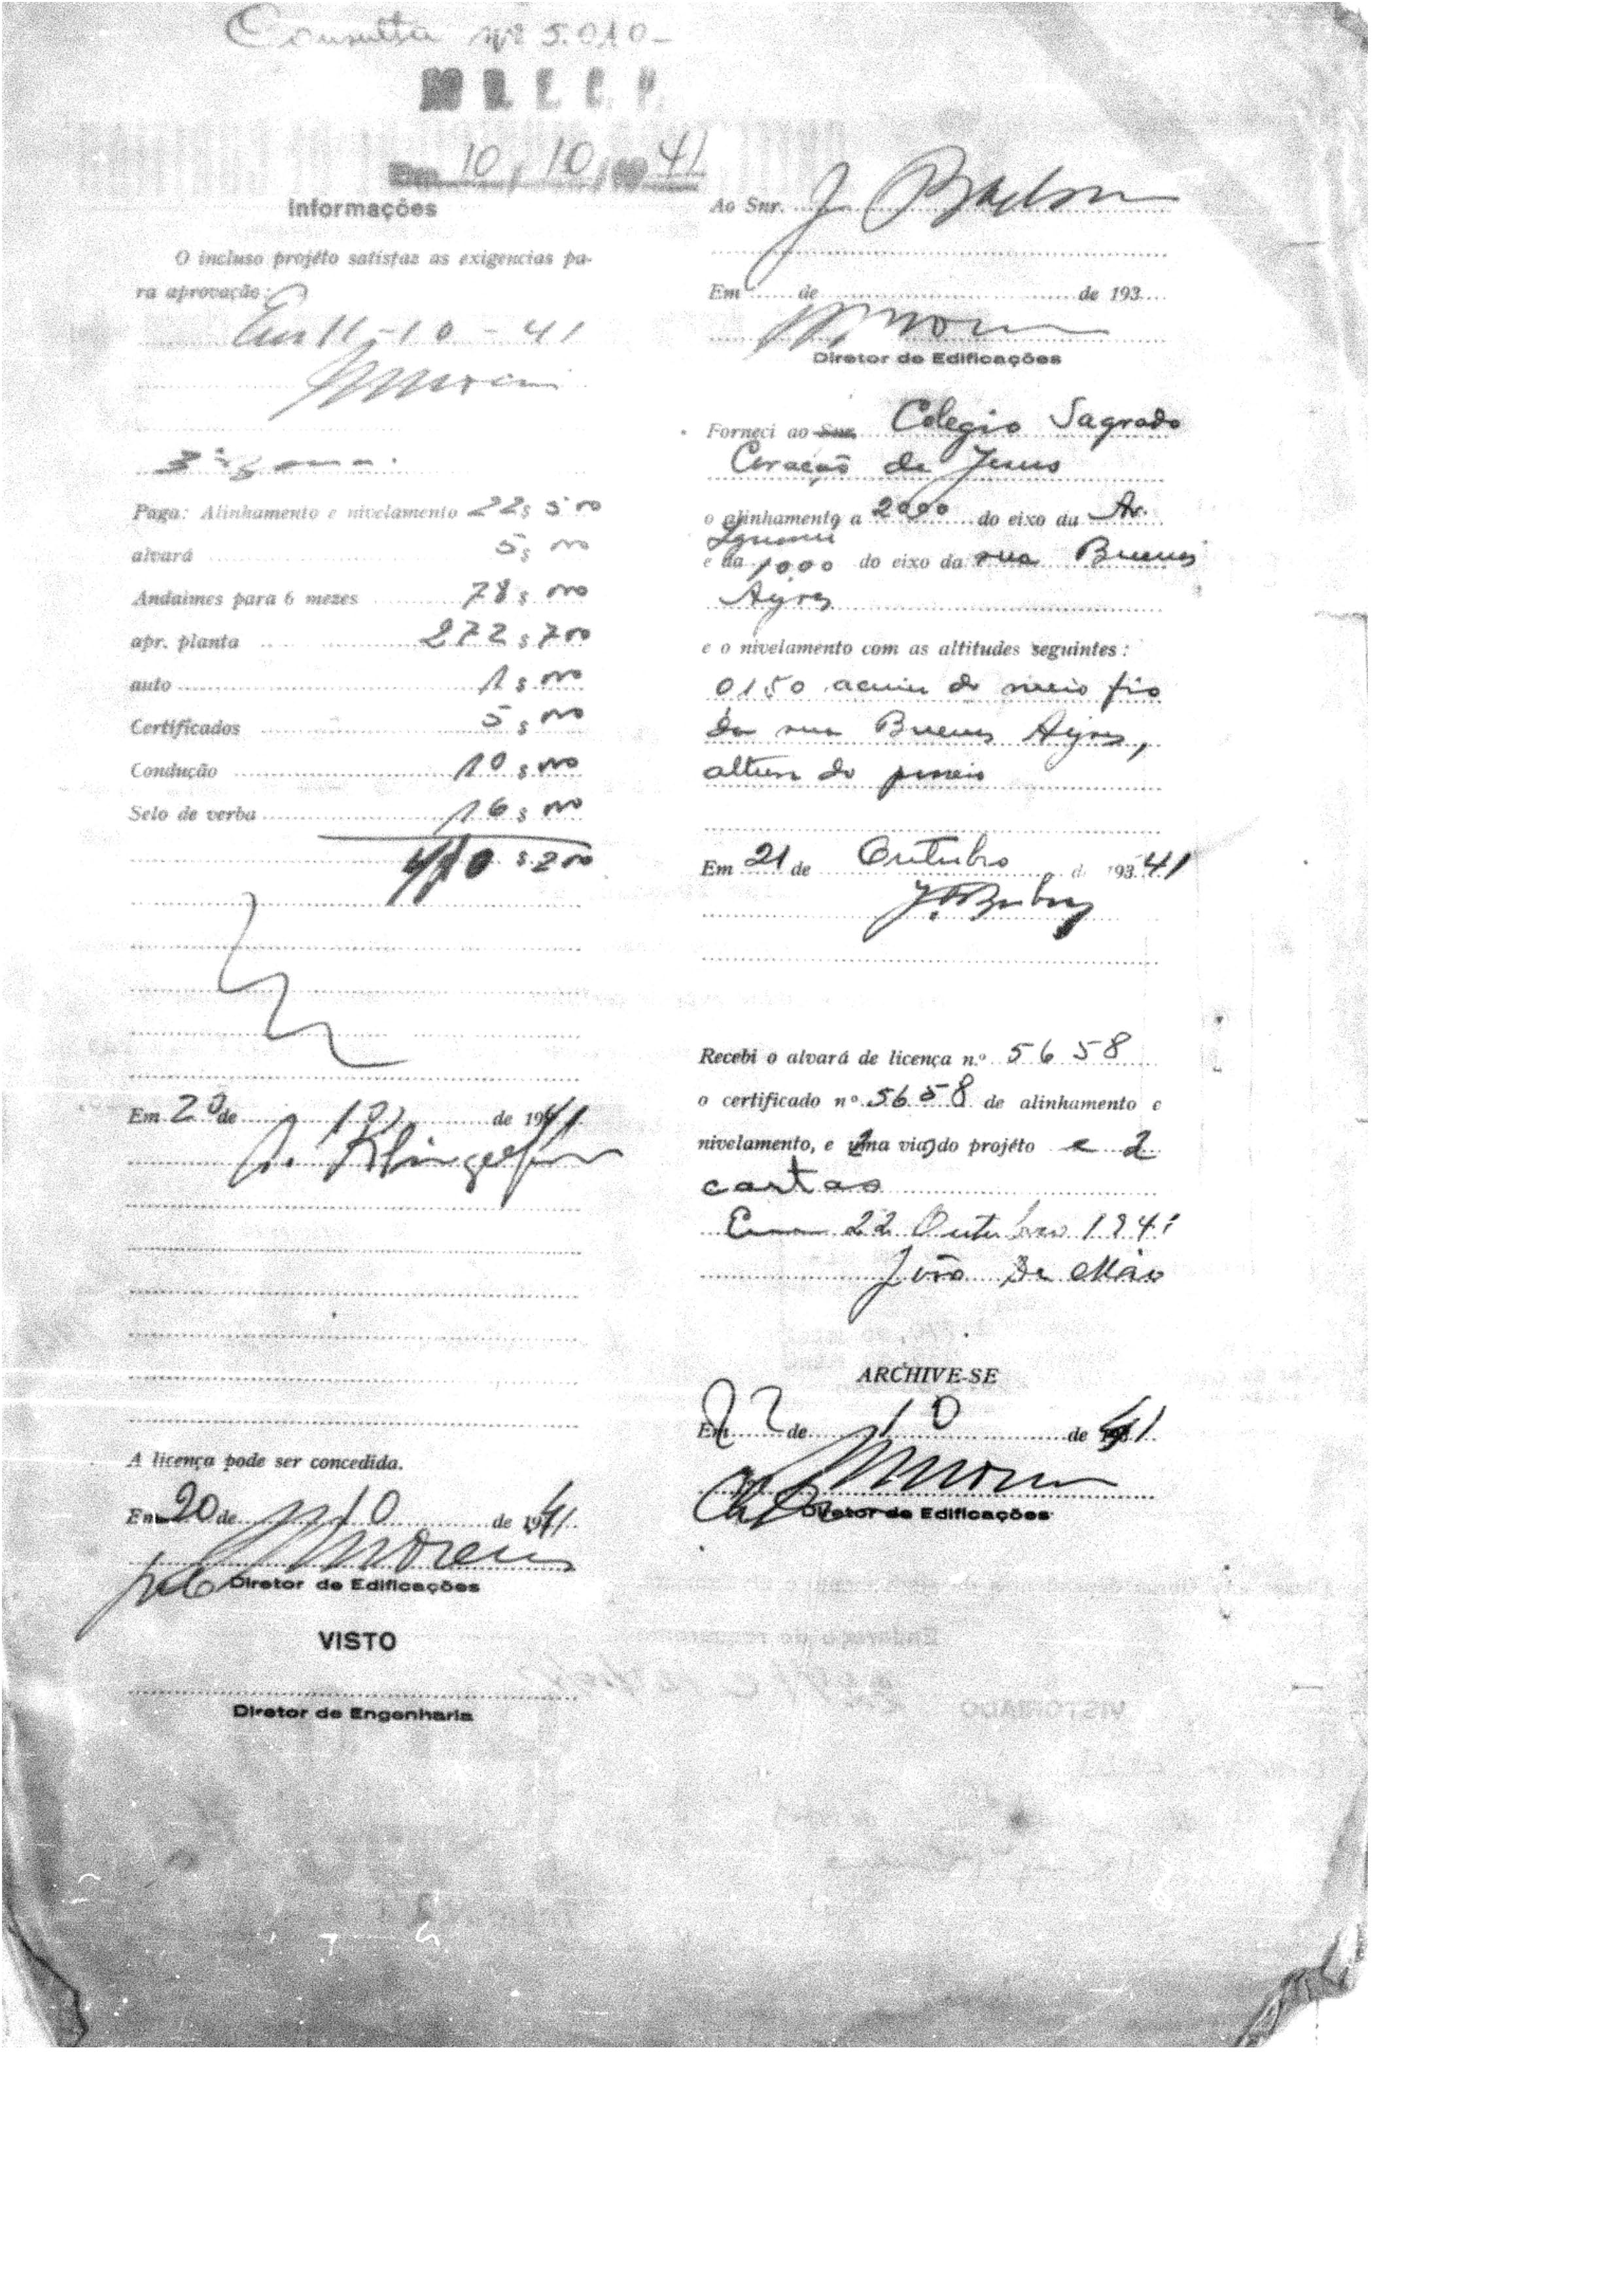 Consulta nº 5.010-
D. E. C. P.
Em 10, 10, 1941
Informações
O incluso projéto satisfaz as exigencias pa-
ra aprovação:
Em 11-10-41
Paga: Alinhamento e nivelamento 22$500
alvará 5$000
Andaimes para 6 mezes 78$000
apr. planta 272$700
auto 1$000
Certificados 5$000
Condução 10$000
Selo de verba 16$000
410$200
Em 20 de 10 de 1941
A licença pode ser concedida.
Em 20 de 10 de 1941
Diretor de Edificações
VISTO
Diretor de Engenharia
Ao Snr. J
Em de de 193
Diretor de Edificações
Forneci ao Snr. Colegio Sagrado
Coração de Jesus
o alinhamento a do eixo da Av.
e da 10.00 do eixo da rua Buenos
Ayres
e o nivelamento com as altitudes seguintes:
0150 acima do meio fio
da rua Buenos Ayres,
altura do
Em 21 de Outubro de 19341
Recebi o alvará de licença n.º 5658
o certificado nº 5658 de alinhamento e
nivelamento, e uma via do projéto e 2
cartas
Em 22 Outubro 1941
João De Mão
ARCHIVE-SE
Em 22 de 10 de 41
Diretor de Edificações
Endereço do requerente
VISTORIADO